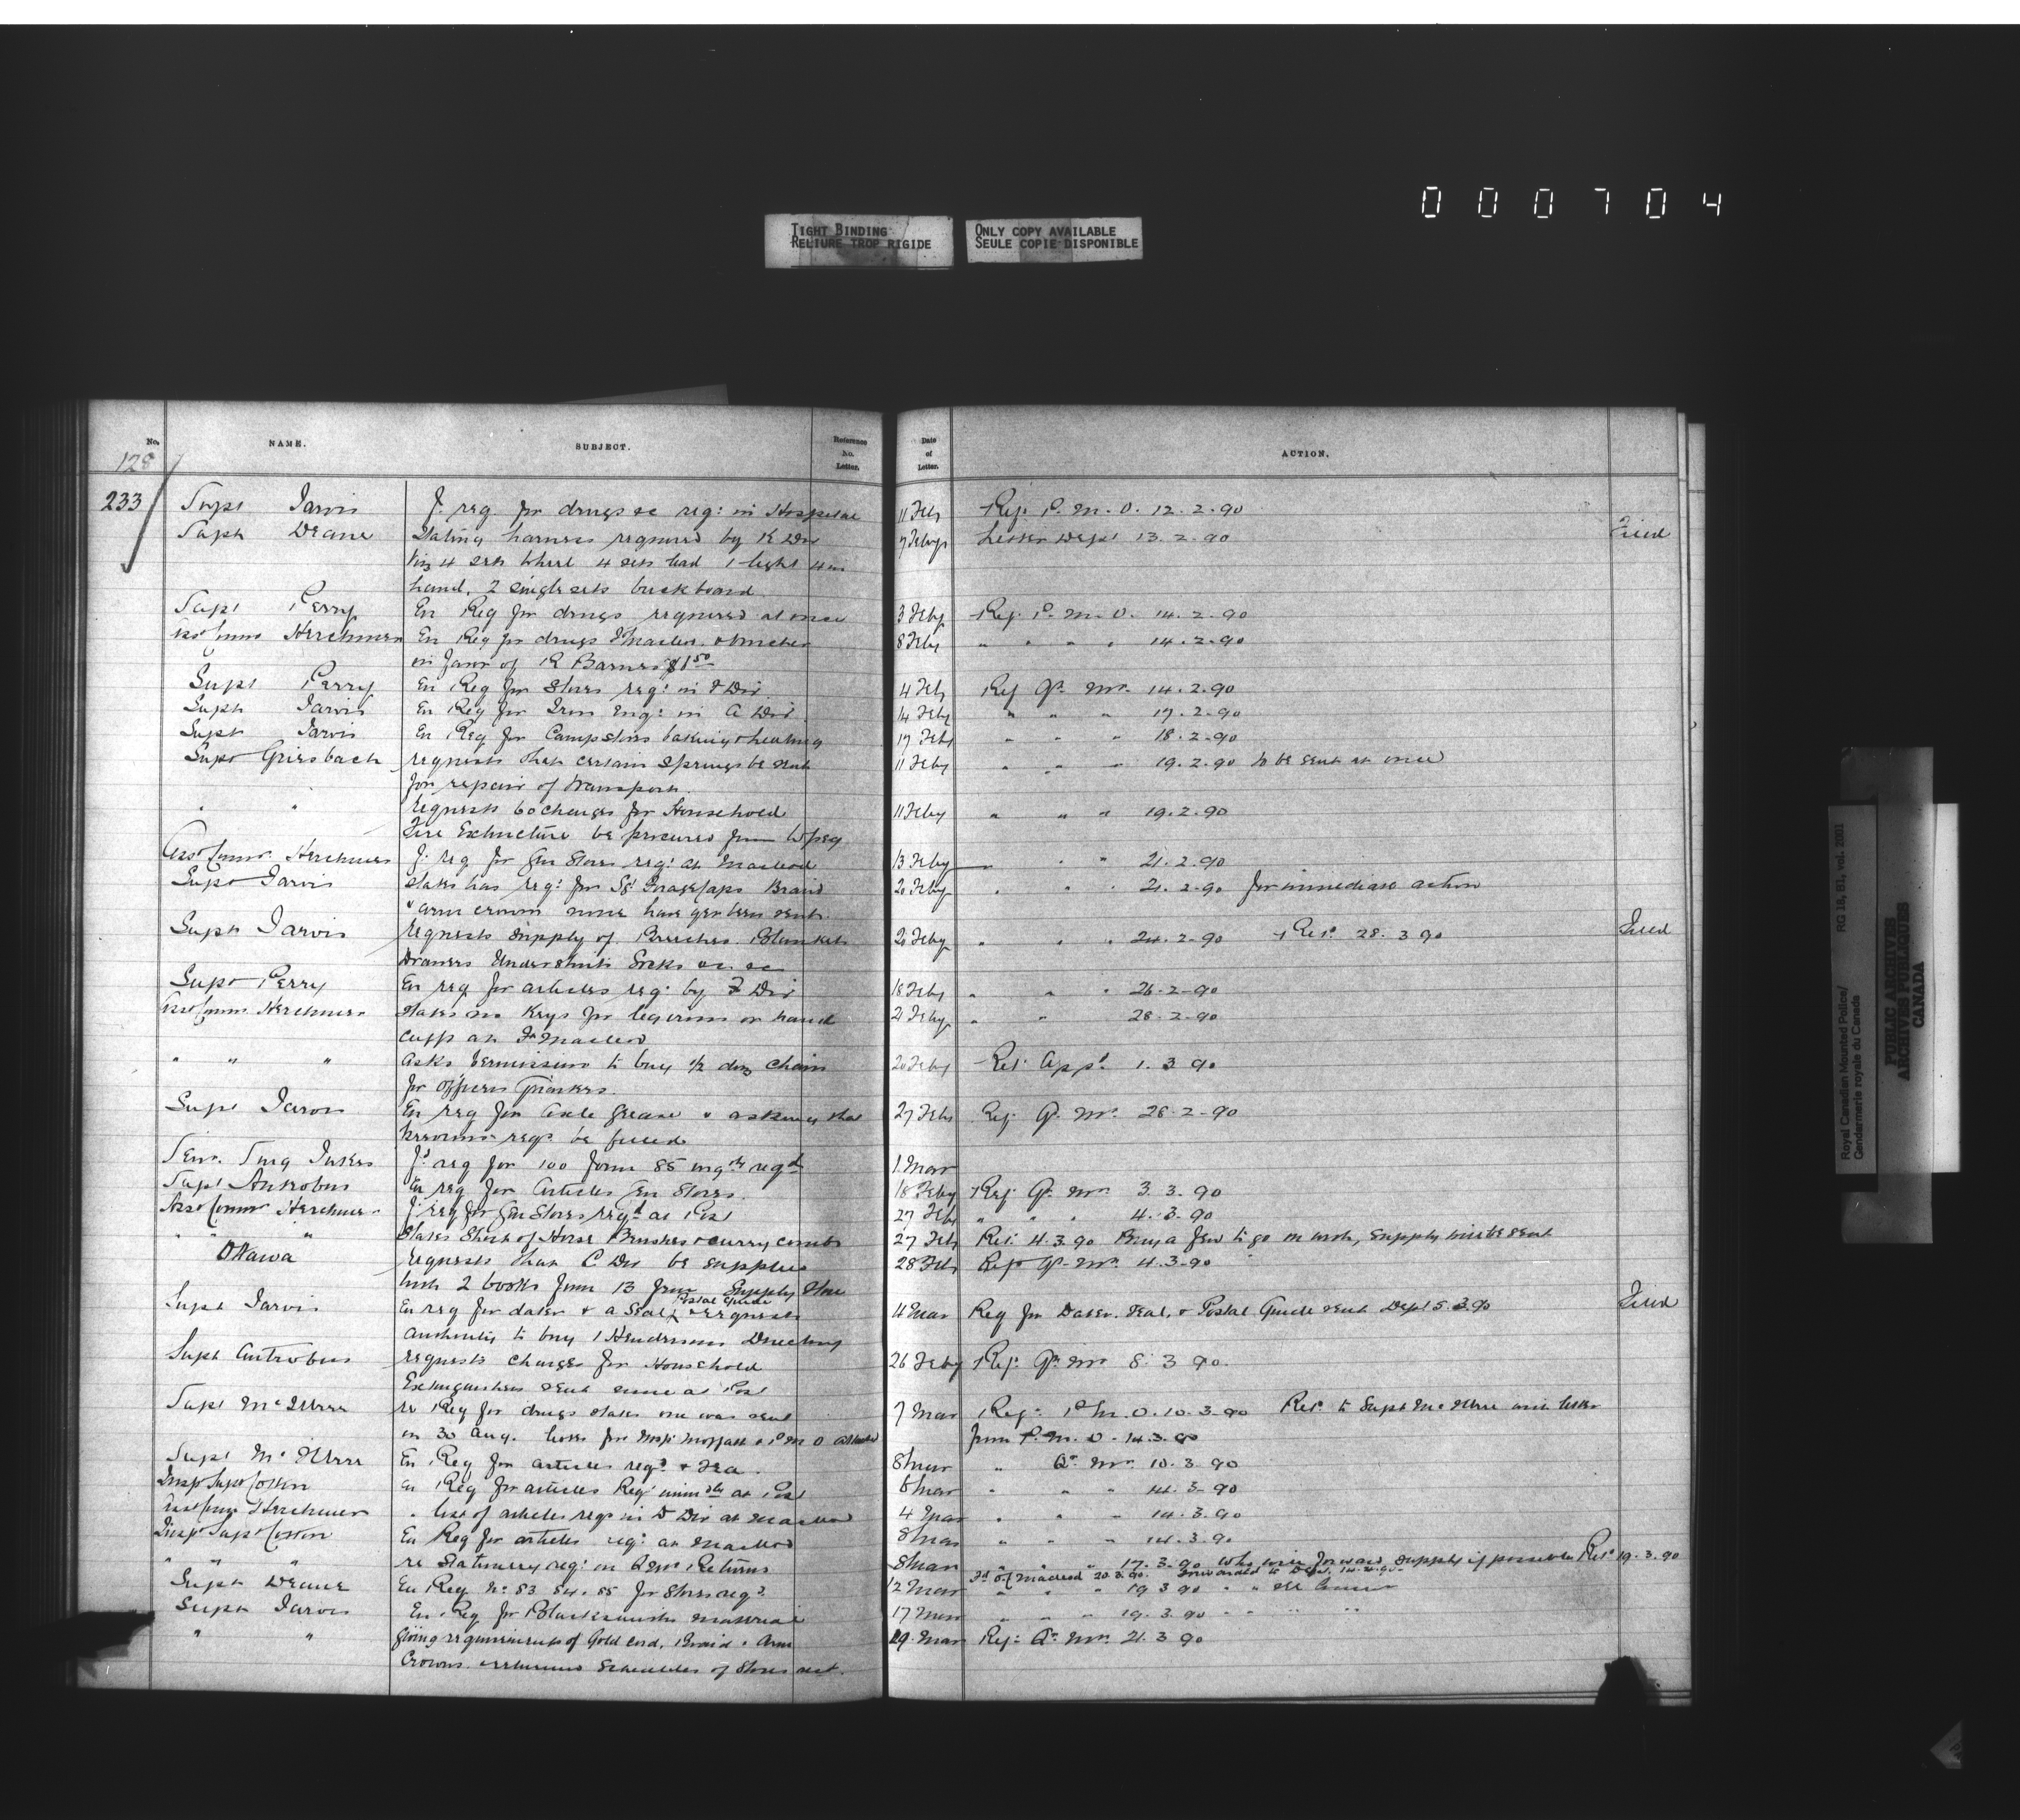 0 0 0 7 0 4
TIGHT BINDING
RELIURE TROP RIGIDE
ONLY COPY AVAILABLE
SEULE COPIE DISPONIBLE
No. NAME. SUBJECT. Reference No. Letter. Date of Letter. ACTION.
128
233 Supt Jarvis F. req for drugs &c req: in Hospital 11 Feb Ref. P. M. O. 12.2.90
Supt Deane Stating harness required by K Div 9 Feby Letter Dept 13.2.90 Filed
Viz 4 sets Wheel 4 sets lead 1 light 4 in
hand, 2 single sets buckboard
Supt Perry En Req for drugs required at once 3 Feby Ref. P. M. O. 14.2.90
Asst Commr Herchmer En Req for drugs Macleod & Voucher 8 Feby " " " " 14.2.90
in favor of R Barnes $1 50
Supt Perry En Req for Stores req: in F Div. 4 Feb Ref Qr. Mr. 14.2.90
Supt Jarvis En Req for Iron Req: in A Div. 14 Feby " " " 17.2.90
Supt Jarvis En Req for Camp stoves baking & heating 17 Feb " " " 18.2.90
Supt Griesbach requests that certain springs be sent 11 Feby " " " 19.2.90 to be sent at once
for repair of transport.
" " requests 60 charges for Household 11 Feby " " " 19.2.90
Fire Extincteur be procured from Wpeg
Asst Commr Herchmer F. req for Gen Stores req: at Macleod 13 Feby " " " 21.2.90
Supt Jarvis states has req: for Sgt Forage Caps Braid 20 Feby " " " 21.2.90 for immediate action
& arm crowns none have yet been sent.
Supt Jarvis requests supply of Breeches Blankets 20 Feby " " " 24.2.90 Ret. 28.3.90 Filed
Drawers Undershirts Socks &c &c
Supt Perry En req for articles req: by F Div 18 Feby " " " 26.2.90
Asst Commr Herchmer states no Keys for leg irons or hand 21 Feby " " 28.2.90
cuffs at Ft Macleod
" " " asks permission to buy 1/2 doz chairs 20 Feby Ret. Appd. 1.3.90
for Officers Quarters.
Supt Jarvis En req for Axle Grease & asking that 27 Feb Ref. Q. Mr. 28.2.90
previous reqs. be filled
Senr. Surg Jukes Fd req for 100 form 85 urgtly reqd 1 Mar
Supt Antrobus En req for Articles Gen Stores. 18 Feby Ref. Qr. Mr. 3.3.90
Asst Commr Herchmer F. req for Gen Stores reqd at Post 27 Feb " " " 4.3.90
" " " States Short of Horse Brushes & curry combs 27 Feb Ret. 4.3.90 Buy a few to go on with, supply will be sent
Ottawa requests that C Div be supplied 28 Feb Ref Qr. Mr. 4.3.90
with 2 books form 13 from Supply Store
Supt Jarvis En req for dater & a Seal Postal Guide & requests 4 Mar Req for Dater. Seal. & Postal Guide sent Dept 5.3.90 Filed
authority to buy 1 Hendersons Directory
Supt Antrobus requests charges for Household 26 Feby Ref. Qr. Mr. 8.3.90
Extinguishers sent none at Post
Supt McIllree re Req for drugs states one was sent 7 Mar Ref. P. M. O. 10.3.90 Ret. to Supt McIllree with letter
on 30 Aug. letter for Insp Moffatt & P M O attached from P. M. O. 14.3.90
Supt McIllree En Req for articles reqd. & Tea. 8 Mar " Qr. Mr. 10.3.90
Insp Supt Cotton En Req for articles Req: at Post 6 Mar " " " 14.3.90
Asst Commr Herchmer " list of articles reqd in D Div at Macleod 4 Mar " " " 14.3.90
Insp Supt Cotton En Req for articles req: at Macleod 8 Mar " " " 14.3.90
" " " re Stationery req: on Q Mr Returns 8 Mar " " " 17.3.90 Who will forward supply if possible Ret. 19.3.90
Supt Deane En Req No. 83 84.85 for Stores req. 12 Mar " " " 19 3 90
Supt Jarvis En Req for Blacksmiths material 17 Mar " " " 19.3.90 " " " "
" " Giving requirements of Gold Cord, Braid & Arm 19 Mar Ref: Qr. Mr. 21.3.90
Crowns & returns Schedules of Stores
Royal Canadian Mounted Police/ RG 18, B1, vol. 2001
Gendarmerie royale du Canada
PUBLIC ARCHIVES
ARCHIVES PUBLIQUES
CANADA